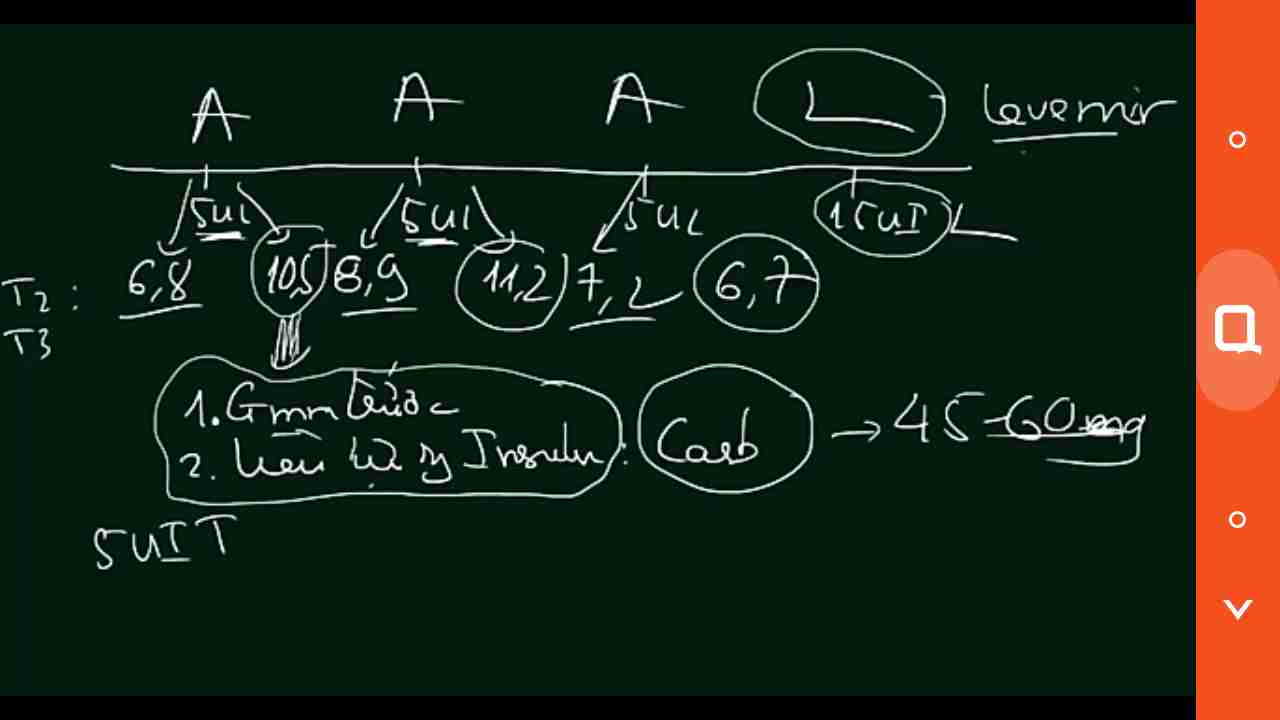 A A A L Levemir
5UI 5UI 5UI 15UI L
T2: 6,8 10,5 8,9 11,2 7,2 6,7
T3
1. Gmm trước
2. liều Insulin: Carb → 45-60mg
5UI T